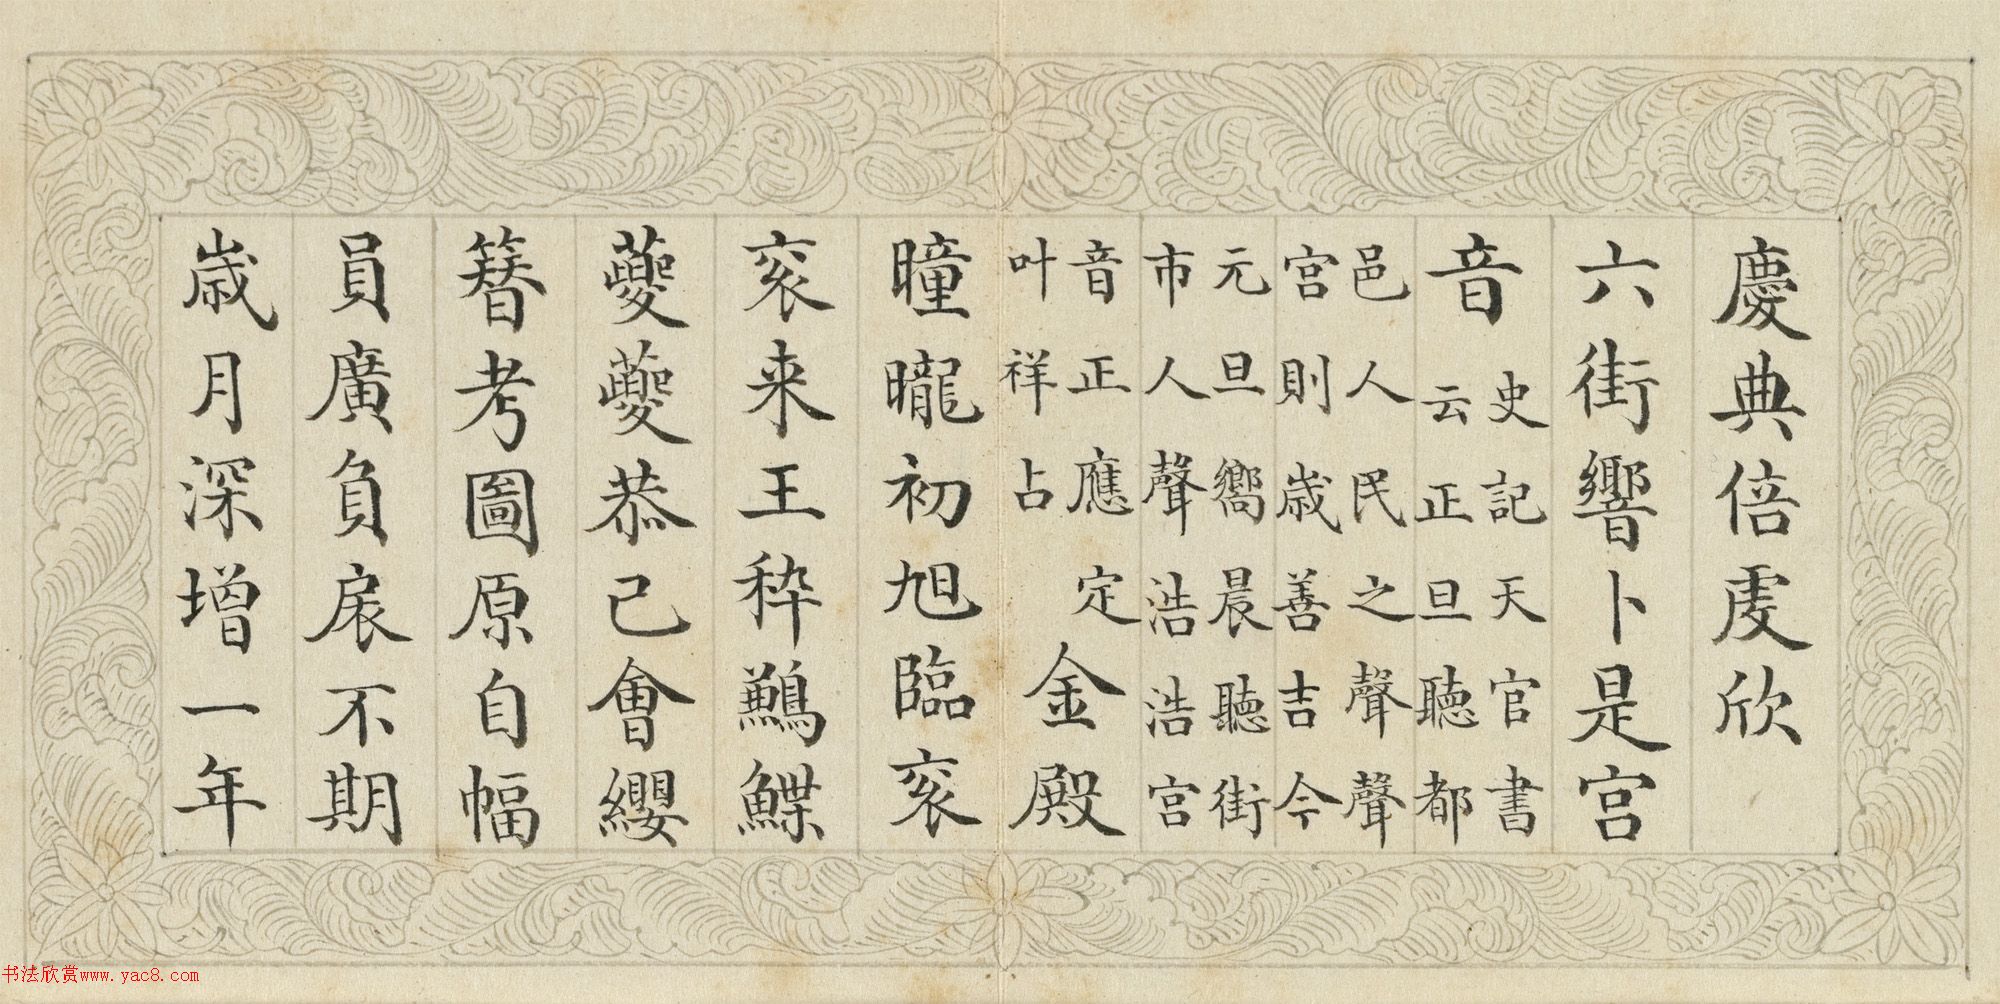 慶典倍虔欣
六街響卜是宮
音史記天官書
云正旦聽都
邑人民之聲聲
宮則歲善吉今
元旦嚮晨聽街
市人聲浩浩宮
音正應定
叶祥占金殿
曈曨初旭臨衮
衮来王稡鶼鰈
夔夔恭己會纓
簪考圖原自幅
員廣負扆不期
歲月深增一年
书法欣赏www.yac8.com